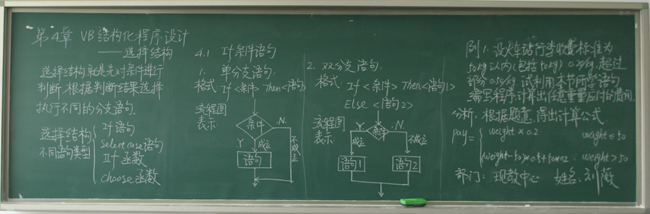 第4章 VB结构化程序设计
——选择结构
选择结构就是先对条件进行
判断,根据判断结果选择
执行不同的分支语句.
选择结构
不同语句类型
If语句
select case语句
IIf函数
choose函数
4.1 If条件语句
1. 单分支语句.
格式 If <条件> Then <语句>
流程图
表示
条件
Y
N
成立
不成立
语句
2. 双分支语句.
格式 If <条件> Then <语句1>
Else <语句2>
流程图
表示
条件
Y
N
成立
不成立
语句1
语句2
例1. 设火车托行李收费标准为
10kg以内(包括10kg) 0.2元/kg,超过
部分0.5元/kg 试利用本节所学语句
编写程序计算出任意重量应付的费用.
分析: 根据题意,得出计算公式
pay=
weight×0.2 weight≤10
weight>10
部门: 现教中心 姓名: 刘薇